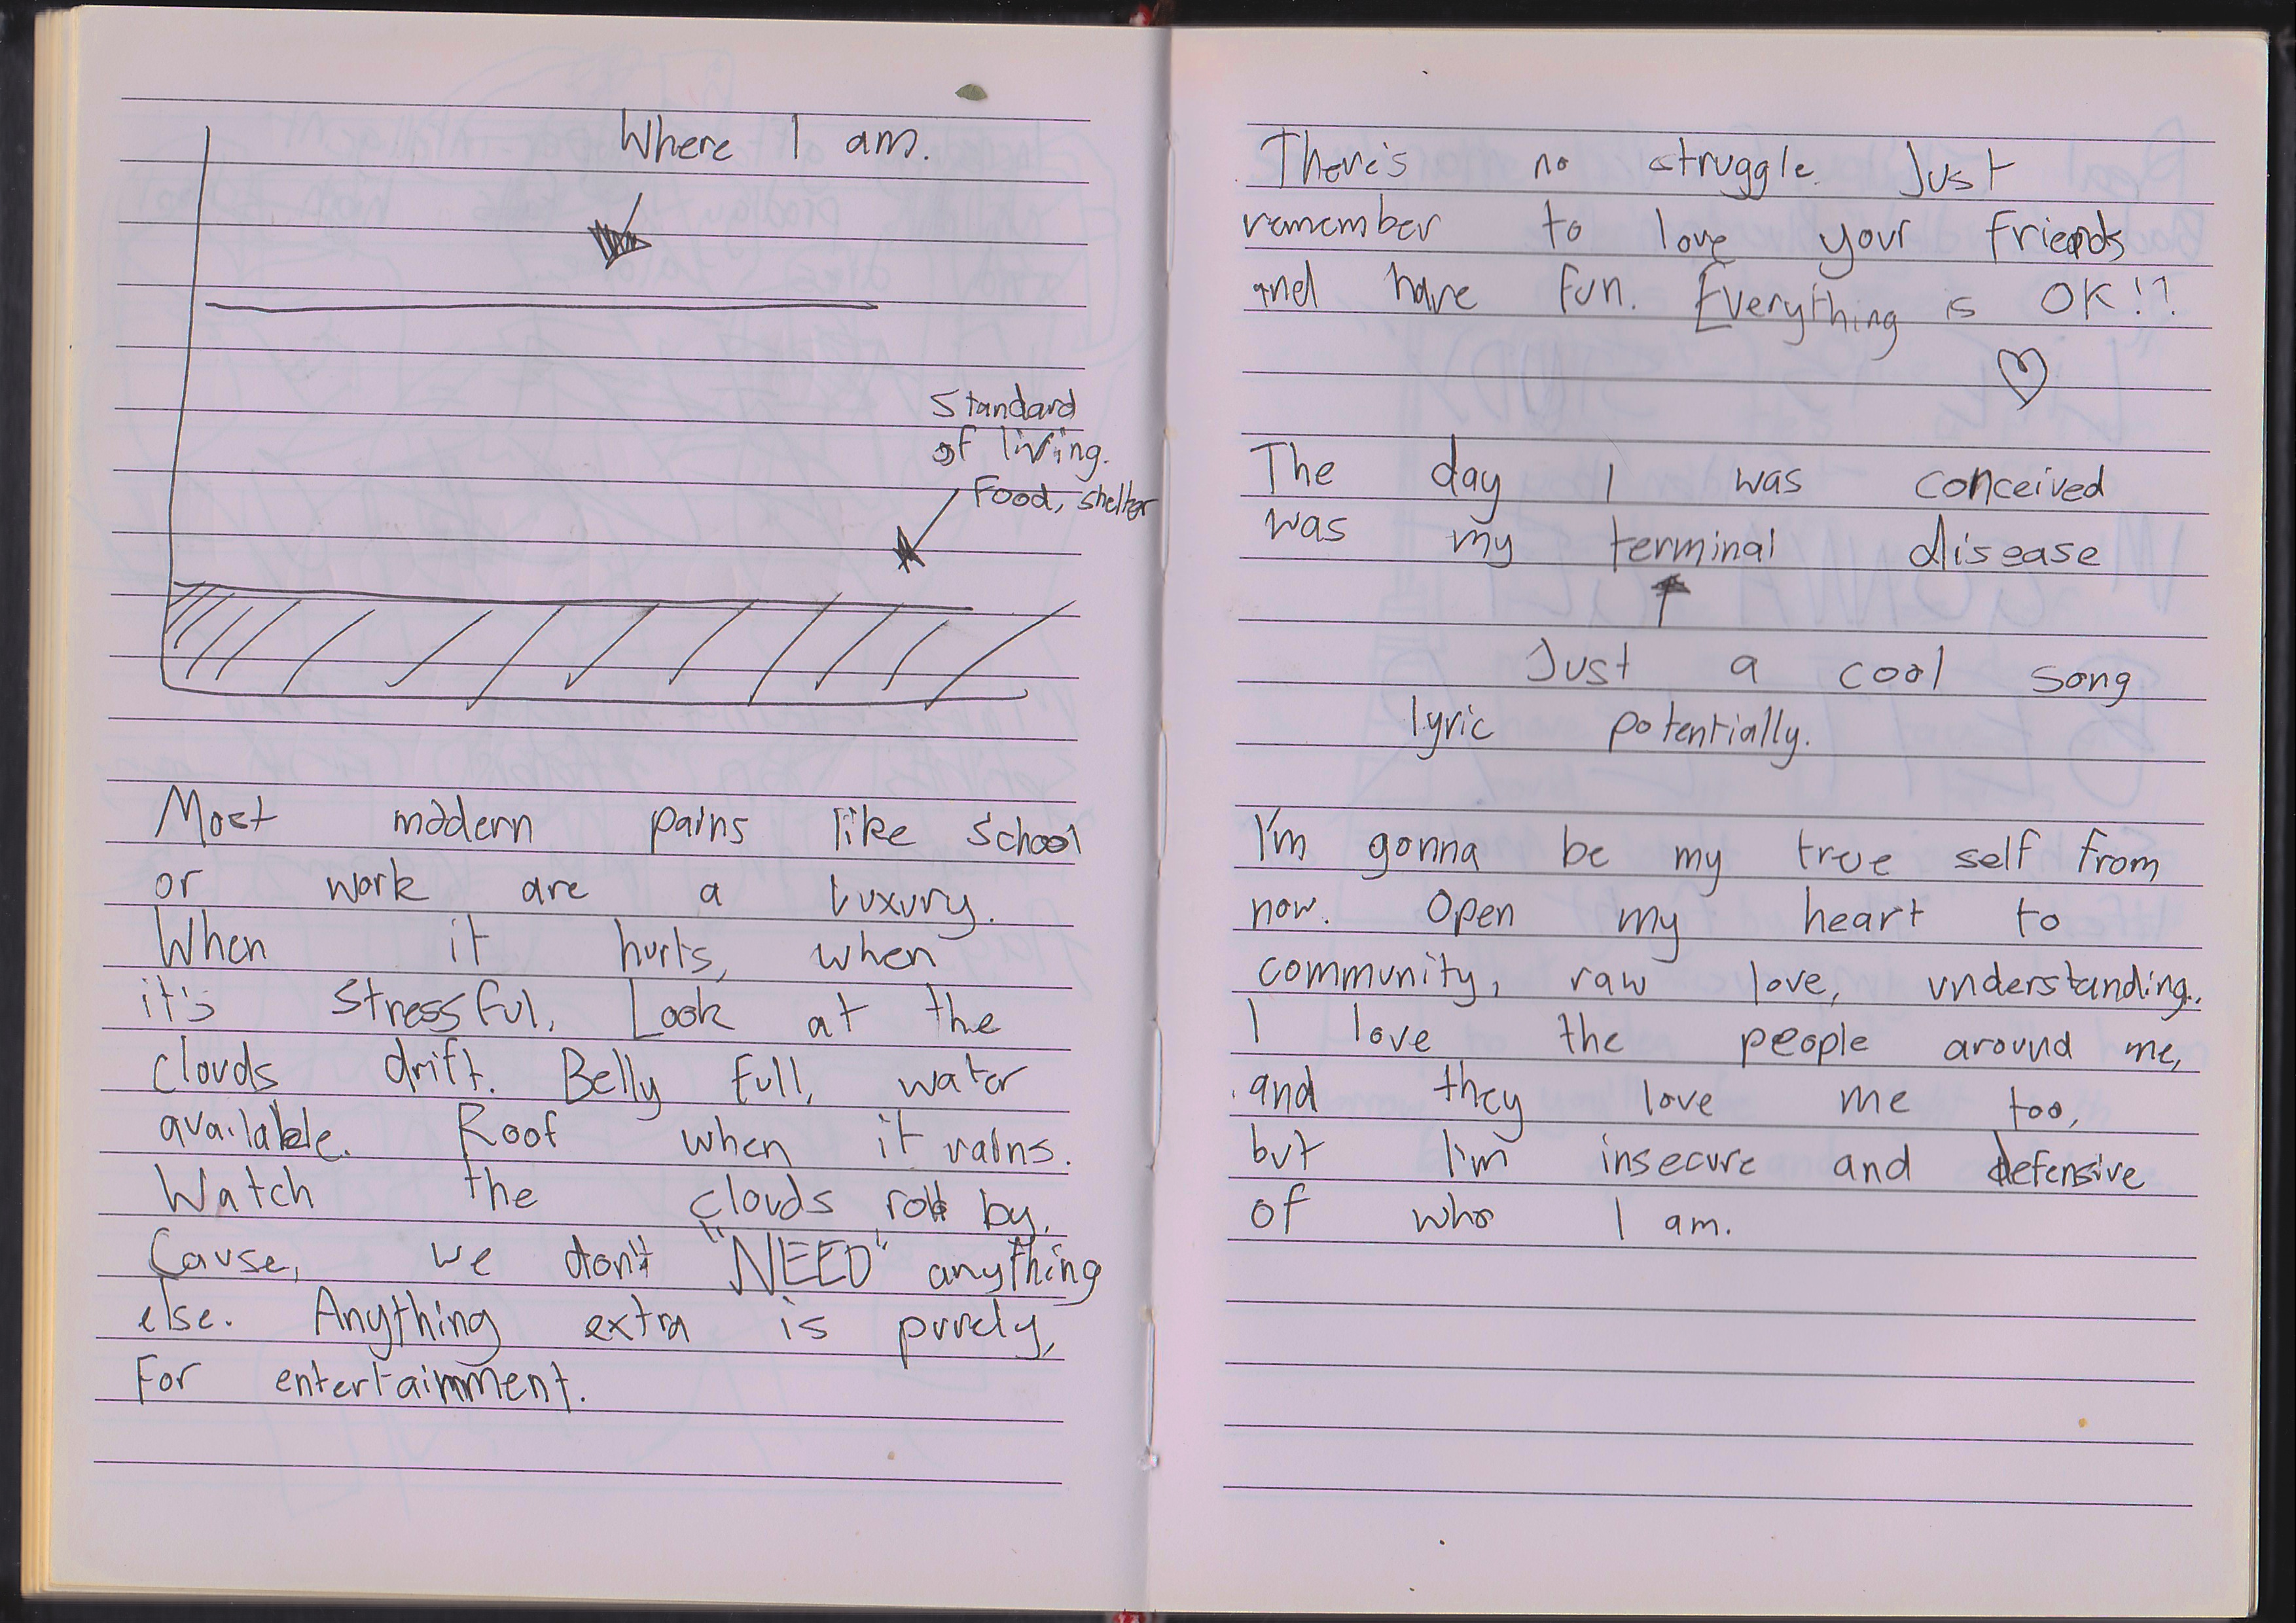 Where I am.
Standard
of living.
Food, shelter
Most modern pains like school
or work are a luxury.
When it hurts, when
it's stressful. Look at the
clouds drift. Belly full, water
available. Roof when it rains.
Watch the clouds roll by.
Cause, we don't "NEED" anything
else. Anything extra is purely,
For entertainment.
There's no struggle. Just
remember to love your friends
and have fun. Everything is OK!?
The day I was conceived
was my terminal disease
Just a cool song
lyric potentially.
I'm gonna be my true self from
now. Open my heart to
community, raw love, understanding.
I love the people around me,
and they love me too,
but I'm insecure and defensive
of who I am.